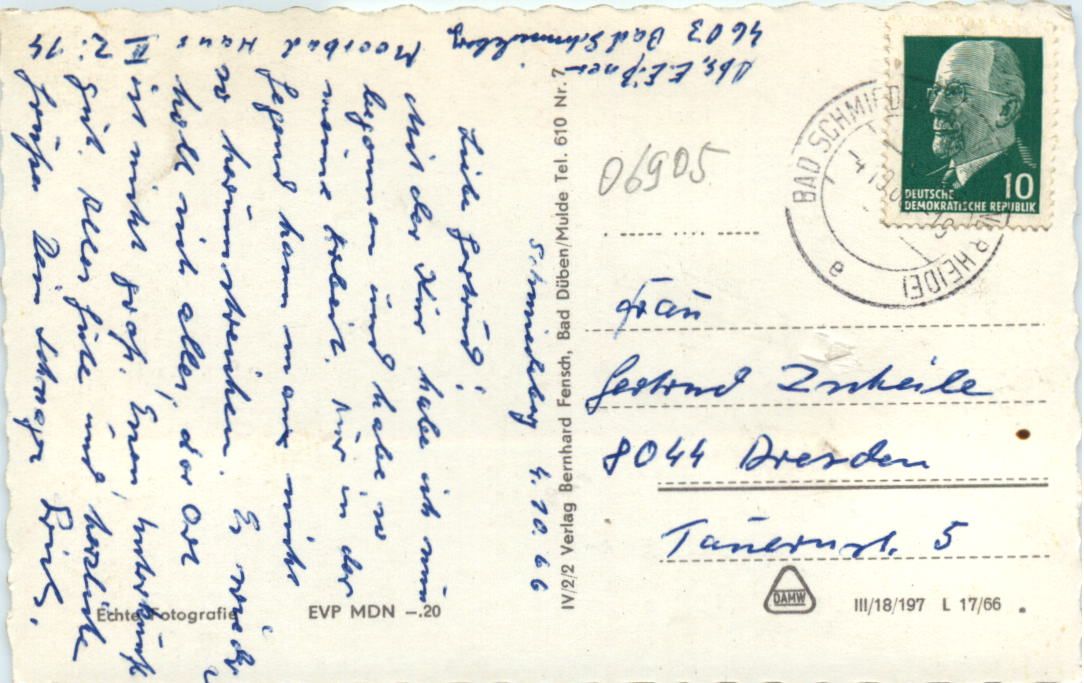 Abs. E. Eißner
4603 Bad Schmiedeberg
Moorbad Haus
III
Z. 14
Schmiedeberg 4.10.66
Liebe Gertrud!
Mit der Kur habe ich nun
begonnen und habe so
meine Arbeit. Nur in der
Gegend kann man nicht
so herumstreichen. Es wieder
holt sich alles, der Ort
ist nicht groß. Essen, Unterkunft
gut. Alles Gute und herzliche
Grüße Dein Schwager
Echte Fotografie
EVP MDN –.20
IV/2/2 Verlag Bernhard Fensch, Bad Düben/Mulde Tel. 610 Nr. 7
06905
BAD SCHMIEDEBERG
HEIDE
e
10
DEUTSCHE
DEMOKRATISCHE REPUBLIK
Frau
Gertrud Zscheile
8044 Dresden
Tauernstr. 5
DAMW
III/18/197 L 17/66